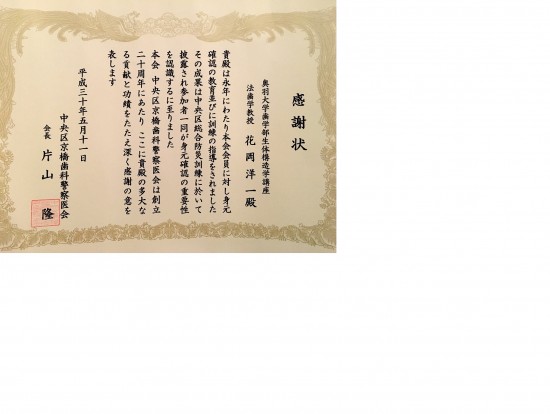 感謝状
奥羽大学歯学部生体構造学講座
法歯学教授 花岡洋一殿
貴殿は永年にわたり本会会員に対し身元
確認の教育並びに訓練の指導をされました
その成果は中央区総合防災訓練に於いて
披露され参加者一同が身元確認の重要性
を認識するに至りました
本会 中央区京橋歯科警察医会は創立
二十周年にあたり ここに貴殿の多大な
る貢献と功績をたたえ深く感謝の意を
表します
平成三十年五月十一日
中央区京橋歯科警察医会
会長 片山 隆